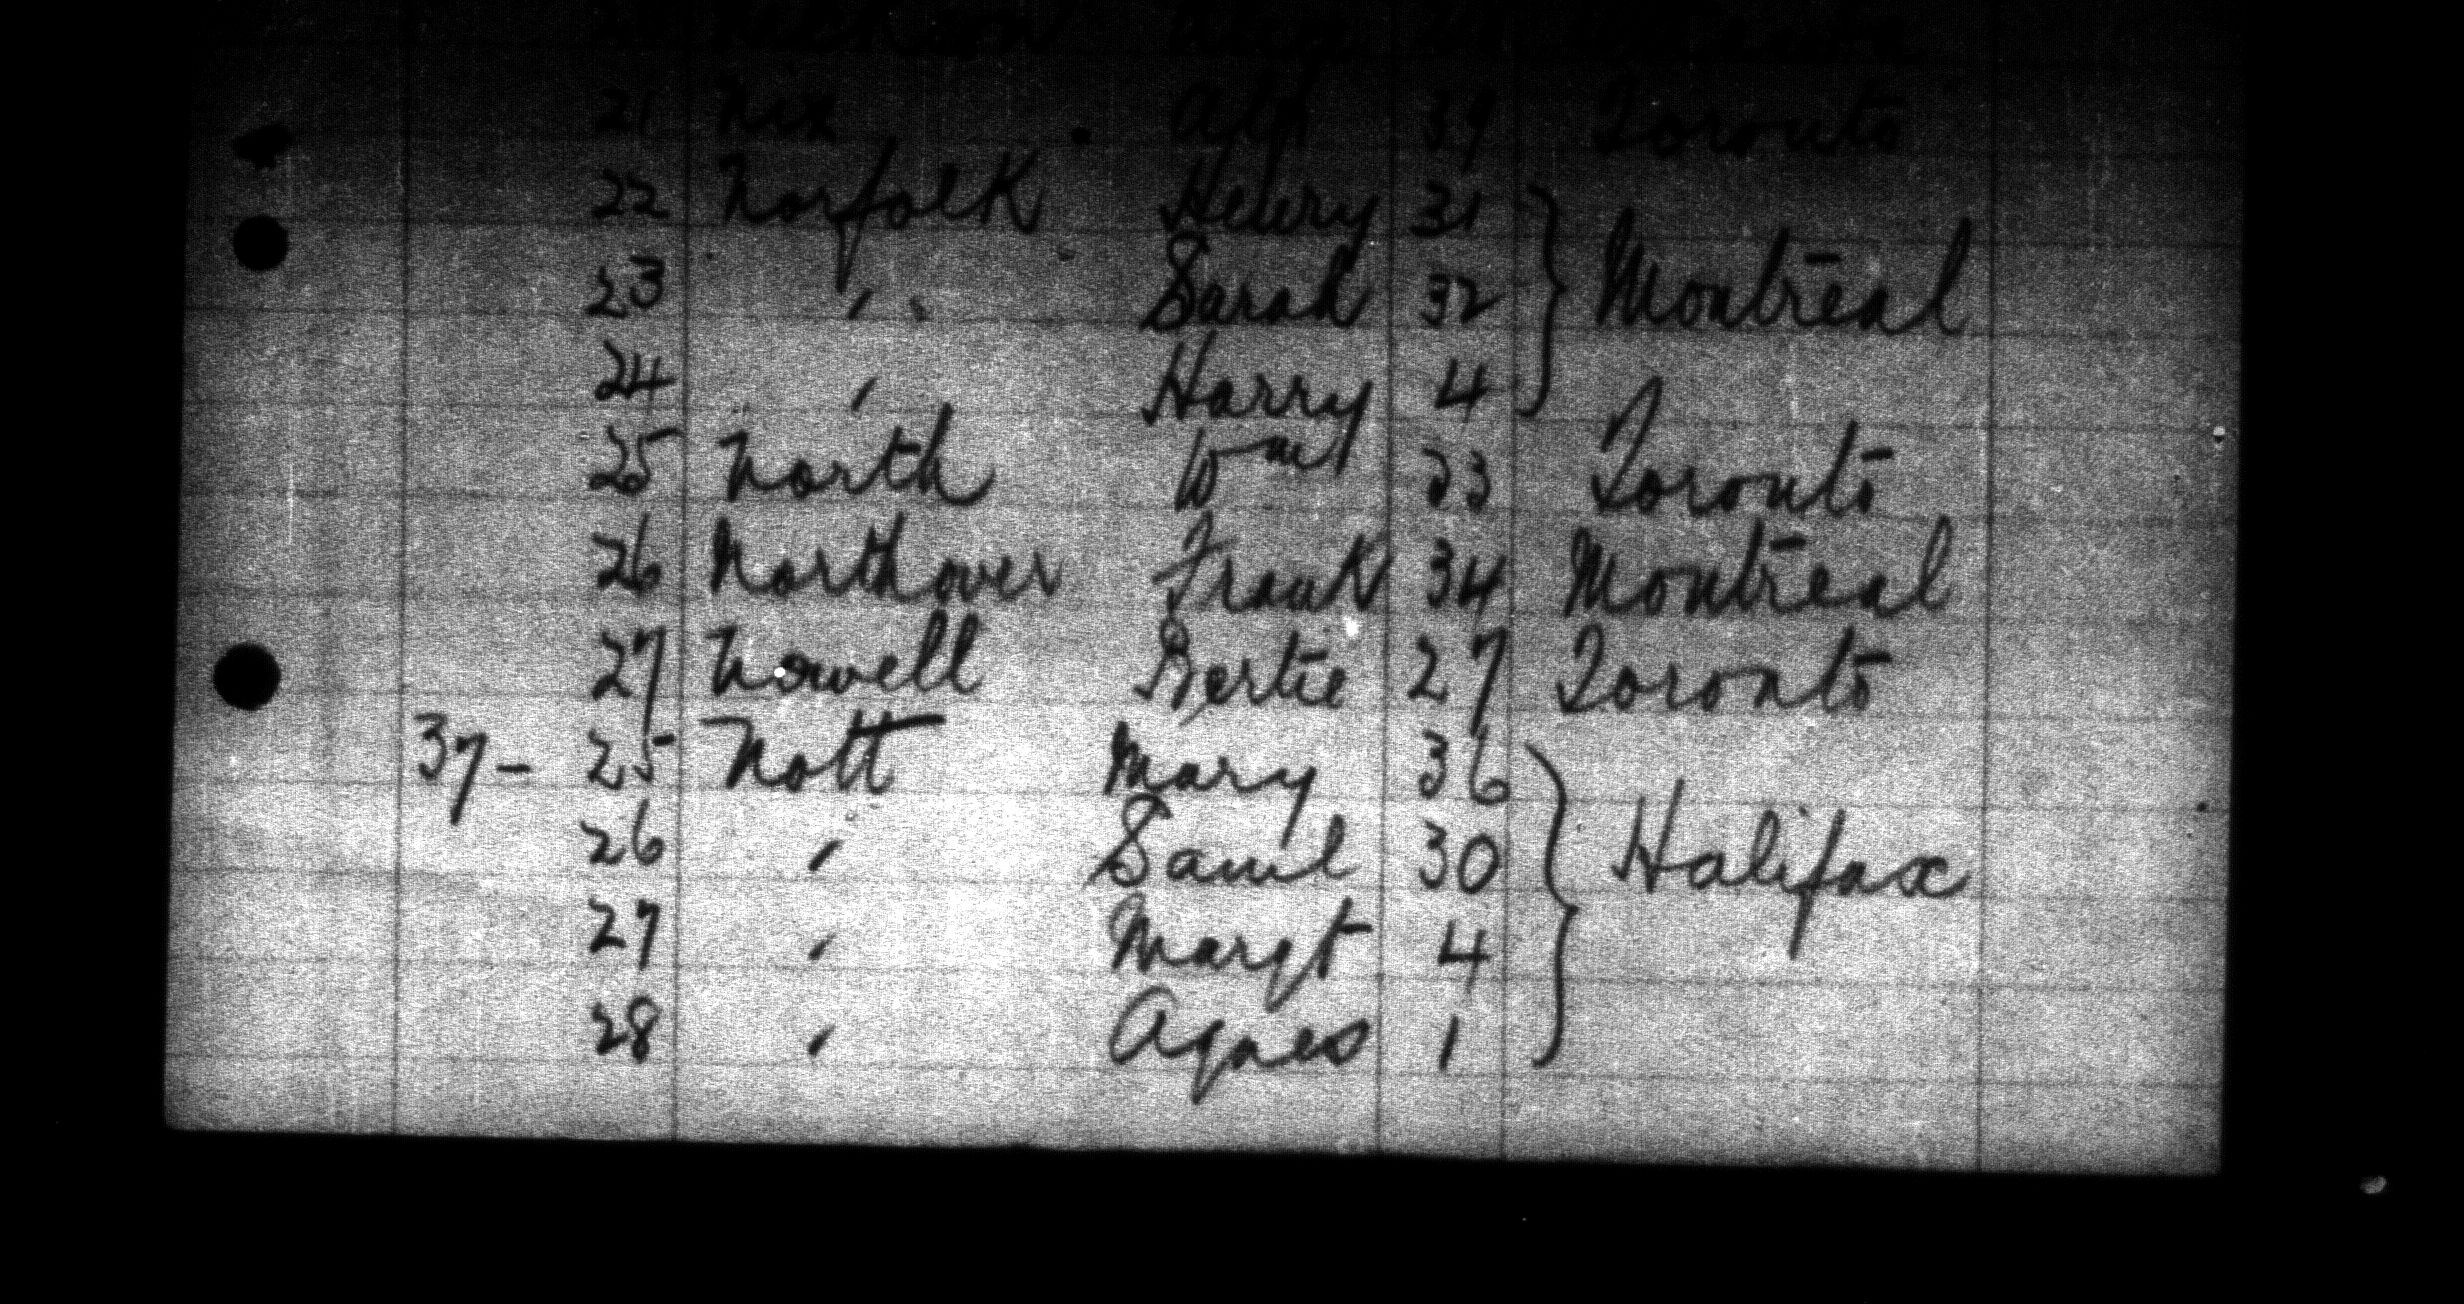 21 Nix Alf 39 Toronto
22 Norfolk Henry 31
23 " Sarah 32 Montreal
24 ' Harry 4
25 North Wm 33 Toronto
26 Northover Frank 34 Montreal
27 Nowell Bertie 27 Toronto
37- 25 Nott Mary 36
26 ' Saml 30 Halifax
27 ' Margt 4
28 ' Agnes 1